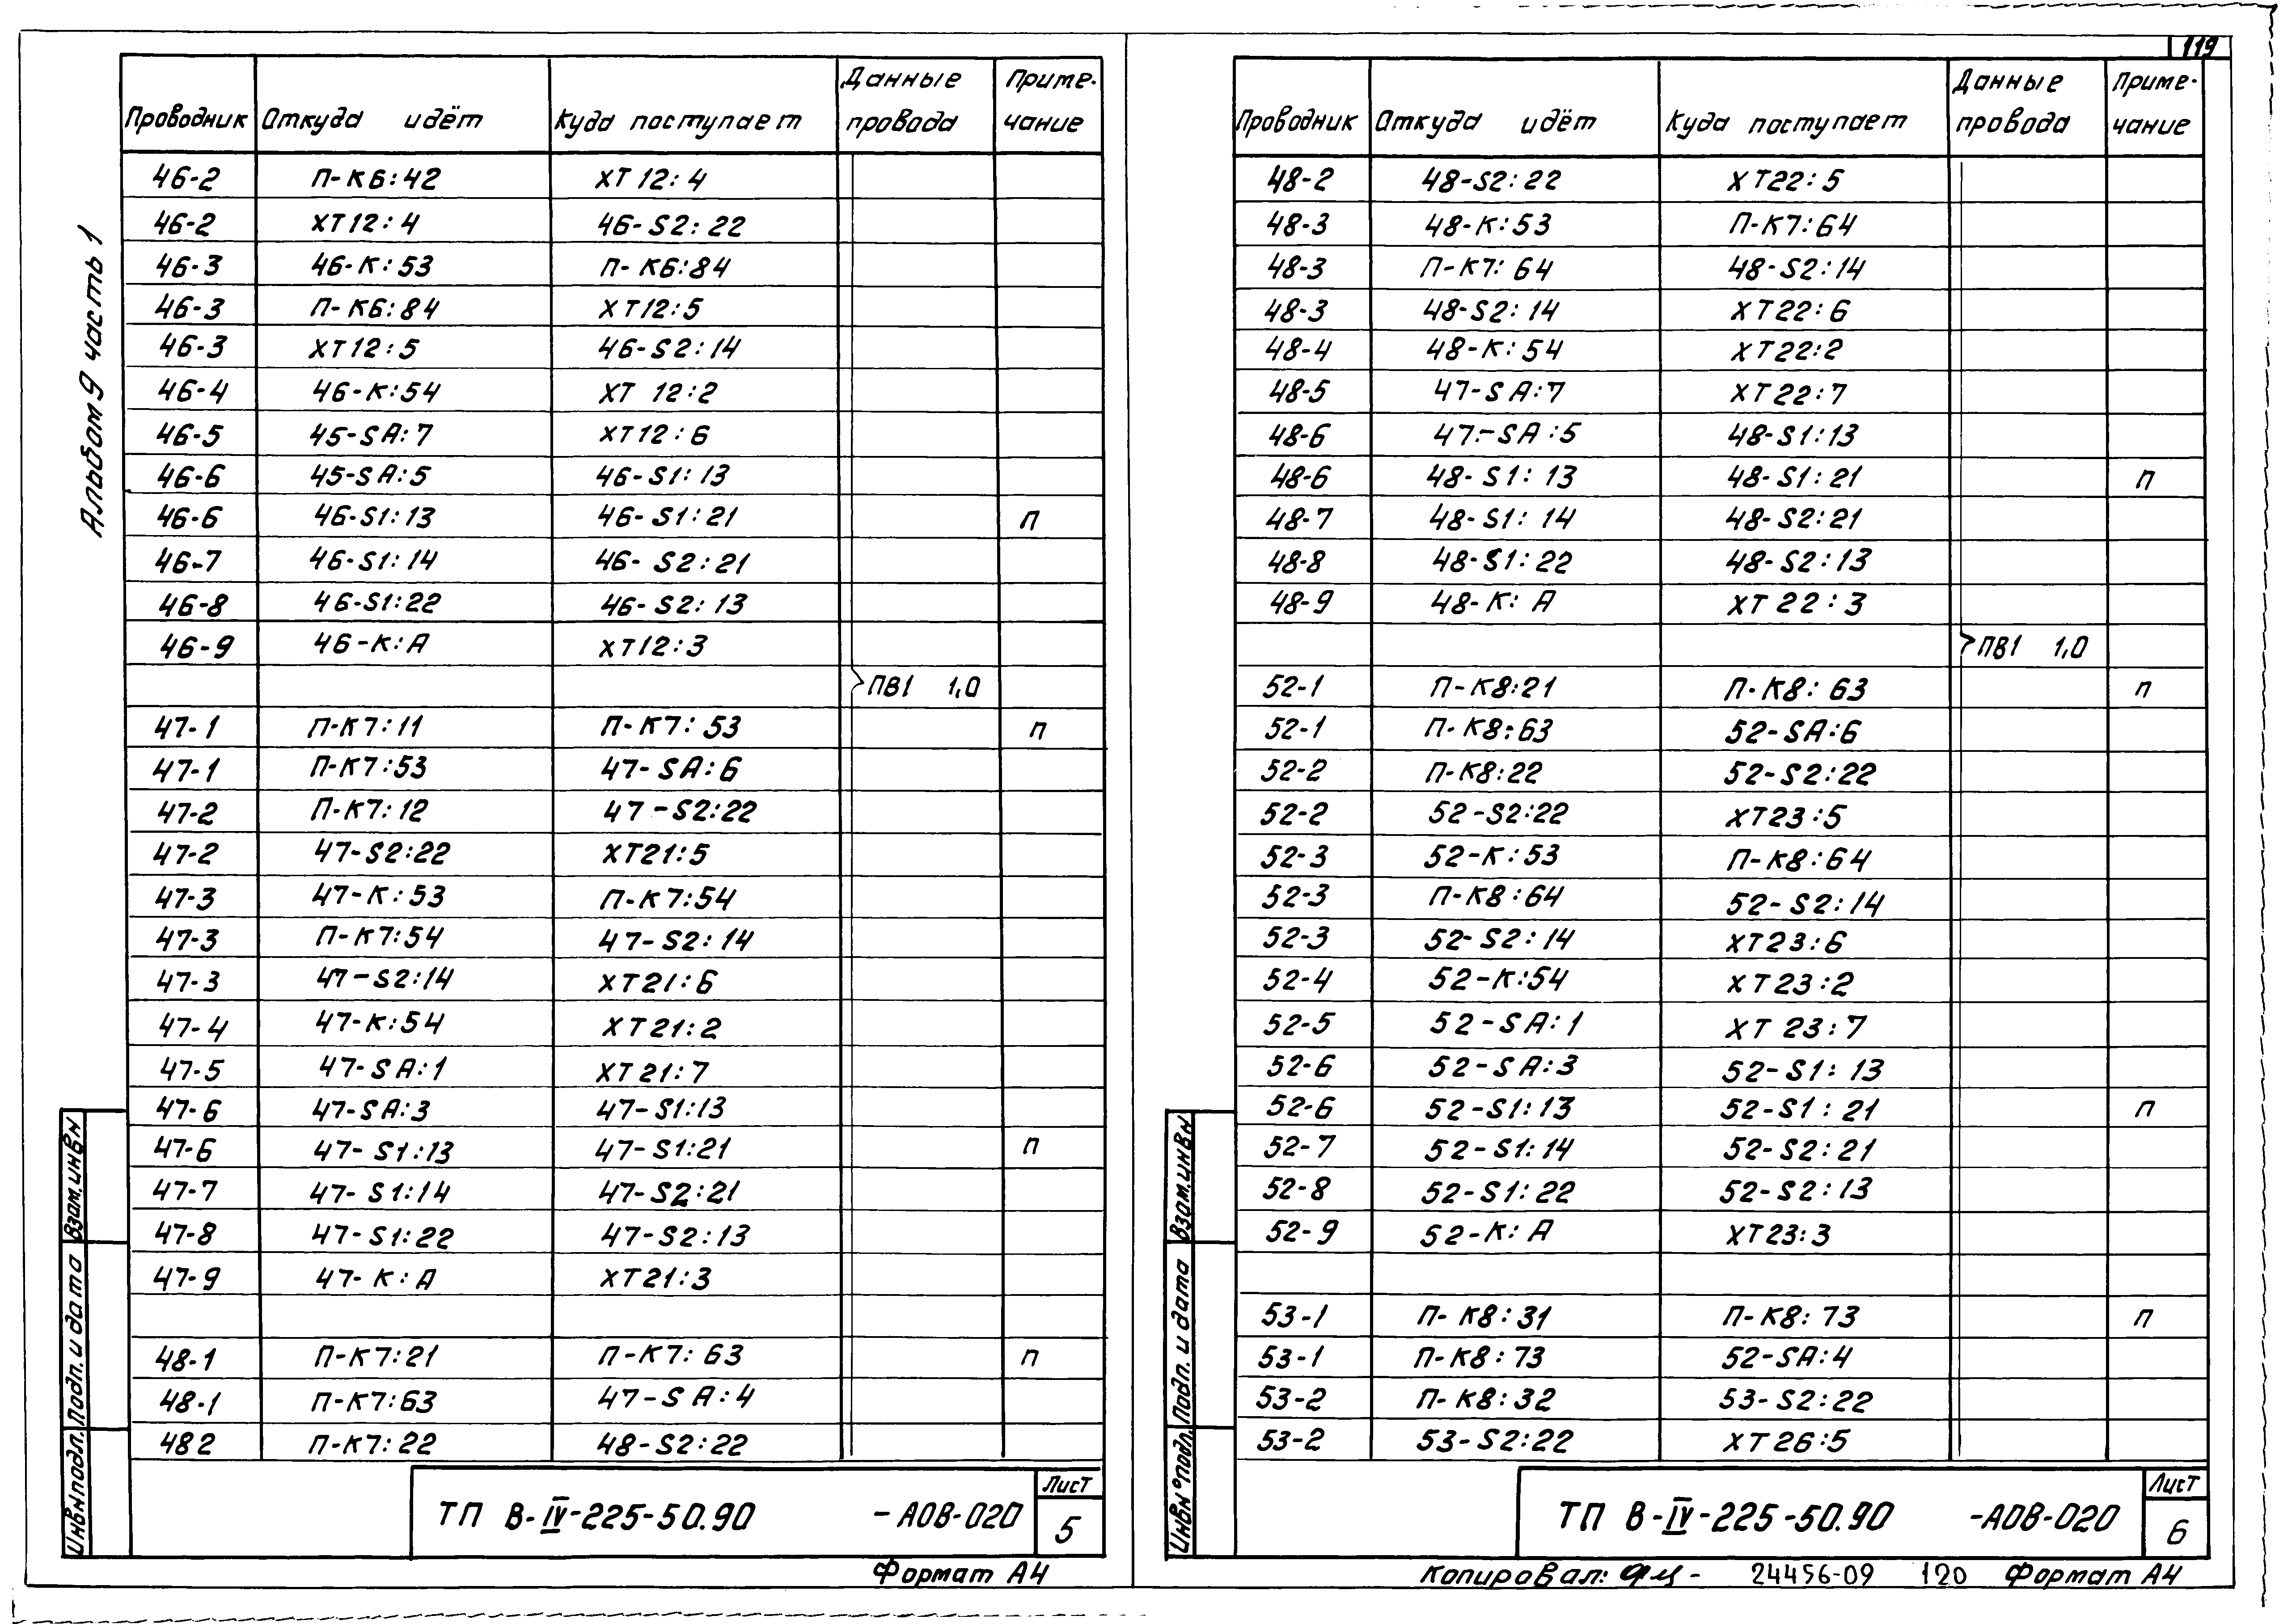 119
Альбом 9 часть 1
Проводник Откуда идёт Куда поступает Данные провода Приме-чание
46-2 П-К6:42 ХТ12:4
46-2 ХТ12:4 46-S2:22
46-3 46-К:53 П-К6:84
46-3 П-К6:84 ХТ12:5
46-3 ХТ12:5 46-S2:14
46-4 46-К:54 ХТ 12:2
46-5 45-SA:7 ХТ12:6
46-6 45-SA:5 46-S1:13
46-6 46-S1:13 46-S1:21 П
46-7 46-S1:14 46-S2:21
46-8 46-S1:22 46-S2:13
46-9 46-К:А ХТ12:3
ПВ1 1,0
47-1 П-К7:11 П-К7:53 п
47-1 П-К7:53 47-SA:6
47-2 П-К7:12 47-S2:22
47-2 47-S2:22 ХТ21:5
47-3 47-К:53 П-К7:54
47-3 П-К7:54 47-S2:14
47-3 47-S2:14 ХТ21:6
47-4 47-К:54 ХТ21:2
47-5 47-SA:1 ХТ21:7
47-6 47-SA:3 47-S1:13
47-6 47-S1:13 47-S1:21 п
47-7 47-S1:14 47-S2:21
47-8 47-S1:22 47-S2:13
47-9 47-К:А ХТ21:3
48-1 П-К7:21 П-К7:63 п
48-1 П-К7:63 47-SA:4
482 П-К7:22 48-S2:22
Взам.инвн
Подп. и дата
Инвн подл.
ТП В-IV-225-50.90 -АОВ-020
Лист
5
Формат А4
Проводник Откуда идёт Куда поступает Данные провода Приме-чание
48-2 48-S2:22 ХТ22:5
48-3 48-К:53 П-К7:64
48-3 П-К7:64 48-S2:14
48-3 48-S2:14 ХТ22:6
48-4 48-К:54 ХТ22:2
48-5 47-SA:7 ХТ22:7
48-6 47-SA:5 48-S1:13
48-6 48-S1:13 48-S1:21 п
48-7 48-S1:14 48-S2:21
48-8 48-S1:22 48-S2:13
48-9 48-К:А ХТ22:3
ПВ1 1,0
52-1 П-К8:21 П-К8:63 п
52-1 П-К8:63 52-SA:6
52-2 П-К8:22 52-S2:22
52-2 52-S2:22 ХТ23:5
52-3 52-К:53 П-К8:64
52-3 П-К8:64 52-S2:14
52-3 52-S2:14 ХТ23:6
52-4 52-К:54 ХТ23:2
52-5 52-SA:1 ХТ 23:7
52-6 52-SA:3 52-S1:13
52-6 52-S1:13 52-S1:21 п
52-7 52-S1:14 52-S2:21
52-8 52-S1:22 52-S2:13
52-9 52-К:А ХТ23:3
53-1 П-К8:31 П-К8:73 п
53-1 П-К8:73 52-SA:4
53-2 П-К8:32 53-S2:22
53-2 53-S2:22 ХТ26:5
Взам.инвн
Подп. и дата
Инвн°подл.
ТП В-IV-225-50.90 -АОВ-020
Лист
6
Копировал: 24456-09 120 Формат А4